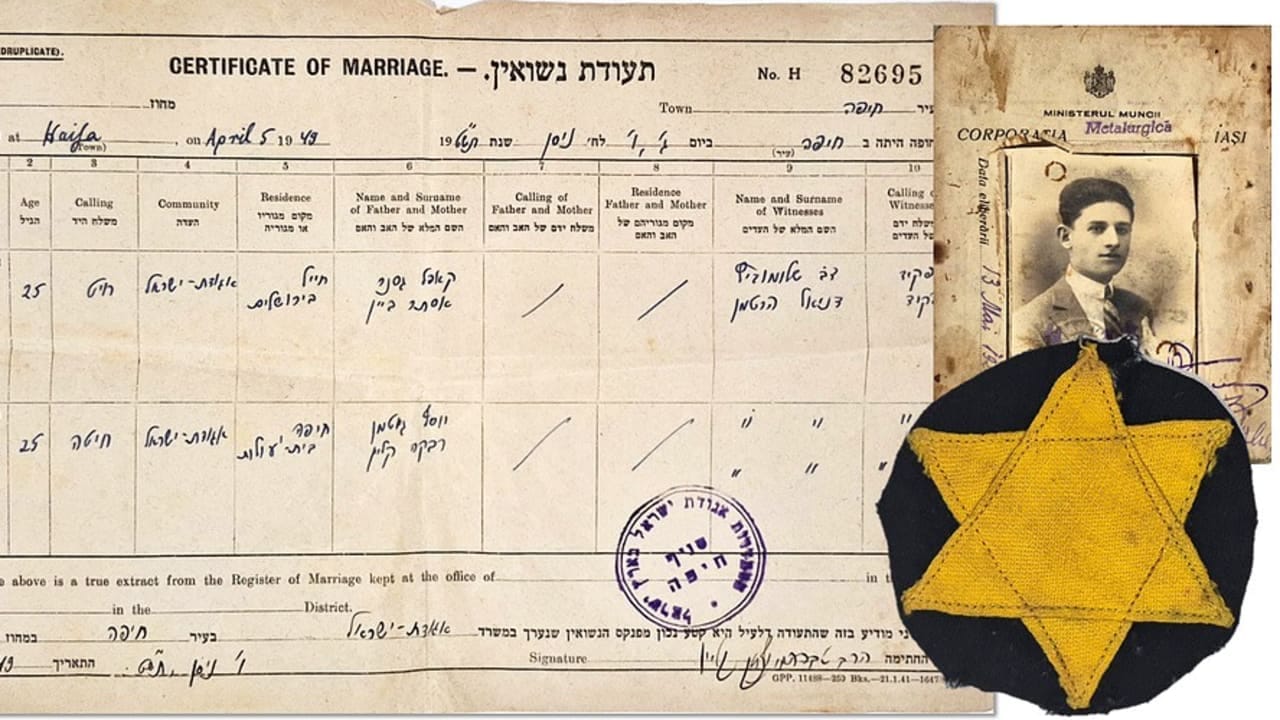 DRUPLICATE).
CERTIFICATE OF MARRIAGE. — תעודת נשואין.
No. H 82695
מחוז
Town חיפה עיר
at Haifa (Town), on April 5 1949
חופה היתה ב חיפה (עיר) ביום ג', ו' לחי ניסן שנת תש"ט 19
2 3 4 5 6 7 8 9 10
Age Calling Community Residence Name and Surname of Father and Mother Calling of Father and Mother Residence Father and Mother Name and Surname of Witnesses Calling o Witnesse
הגיל משלח היד העדה מקום מגוריו או מגוריה השם המלא של האב והאם משלח ידם של האב והאם מקום מגוריהם של האב והאם השם המלא של העדים משלח ידם של העדים
25 חיט אגודת-ישראל חייל בירושלים
דניאל הרטמן
25 חיטה אגודת-ישראל חיפה
יוסף גוטמן
רבקה קליין
" "
" "
הסתדרות אגודת ישראל בארץ ישראל
סניף
חיפה
e above is a true extract from the Register of Marriage kept at the office of in t
in the District.
ני מודיע בזה שהתעודה דלעיל היא קטע נכון מפנקס הנשואין שנערך במשרד אגודת-ישראל
בעיר חיפה במחוז
Signature החתימה הרב
התאריך ו' ניסן, תש"ט
GPP. 11488—250 Bks.—21.1.41—1647
MINISTERUL MUNCII
CORPORAȚIA Metalurgică IAȘI
Data eliberării 13 Mai 19